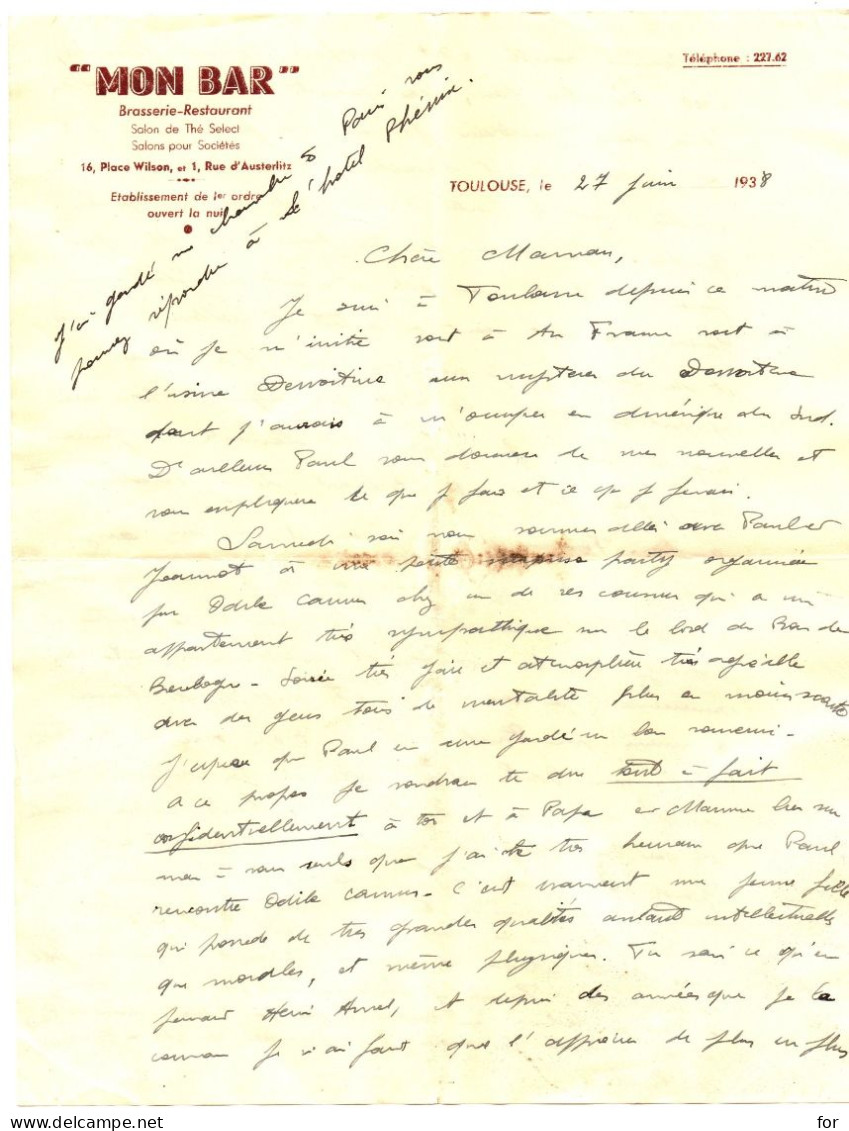 "MON BAR"
Brasserie-Restaurant
Salon de Thé Select
Salons pour Sociétés
16, Place Wilson, et 1, Rue d'Austerlitz
Etablissement de 1er ordre
ouvert la nuit
Téléphone : 227.62
J'ai gardé ma chambre à Paris vous
pouvez répondre à l'hôtel Phénix.
TOULOUSE, le 27 juin 1938
Chère Maman,
Je suis à Toulouse depuis ce matin
où je m'initie soit à Air France soit à
l'usine Dewoitine aux mystères du Dewoitine
dont j'aurais à m'occuper en Amérique du Sud.
D'ailleurs Paul vous donnera de mes nouvelles et
vous expliquera ce que je fais et ce que je ferai.
Samedi soir nous sommes allés avec Paul et
Jeannot à une petite surprise party organisée
par Odile Camus chez un de ses cousins qui a un
appartement très sympathique sur le bord du Bois de
Boulogne - Soirée très gaie et atmosphère très
avec des gens tous de mentalité plus ou moins
J'espère que Paul en aura gardé un bon souvenir -
A ce propos je voudrais te dire tout à fait
confidentiellement à toi et à Papa et
mais à vous seuls que j'ai été très heureux que Paul
rencontre Odile Camus - C'est vraiment une jeune fille
qui possède de très grandes qualités autant intellectuelles
que morales, et même physiques. Tu sais ce qu'en
pensait Henri, et depuis des années que je la
connais je n'ai fait que l'apprécier de plus en plus
for